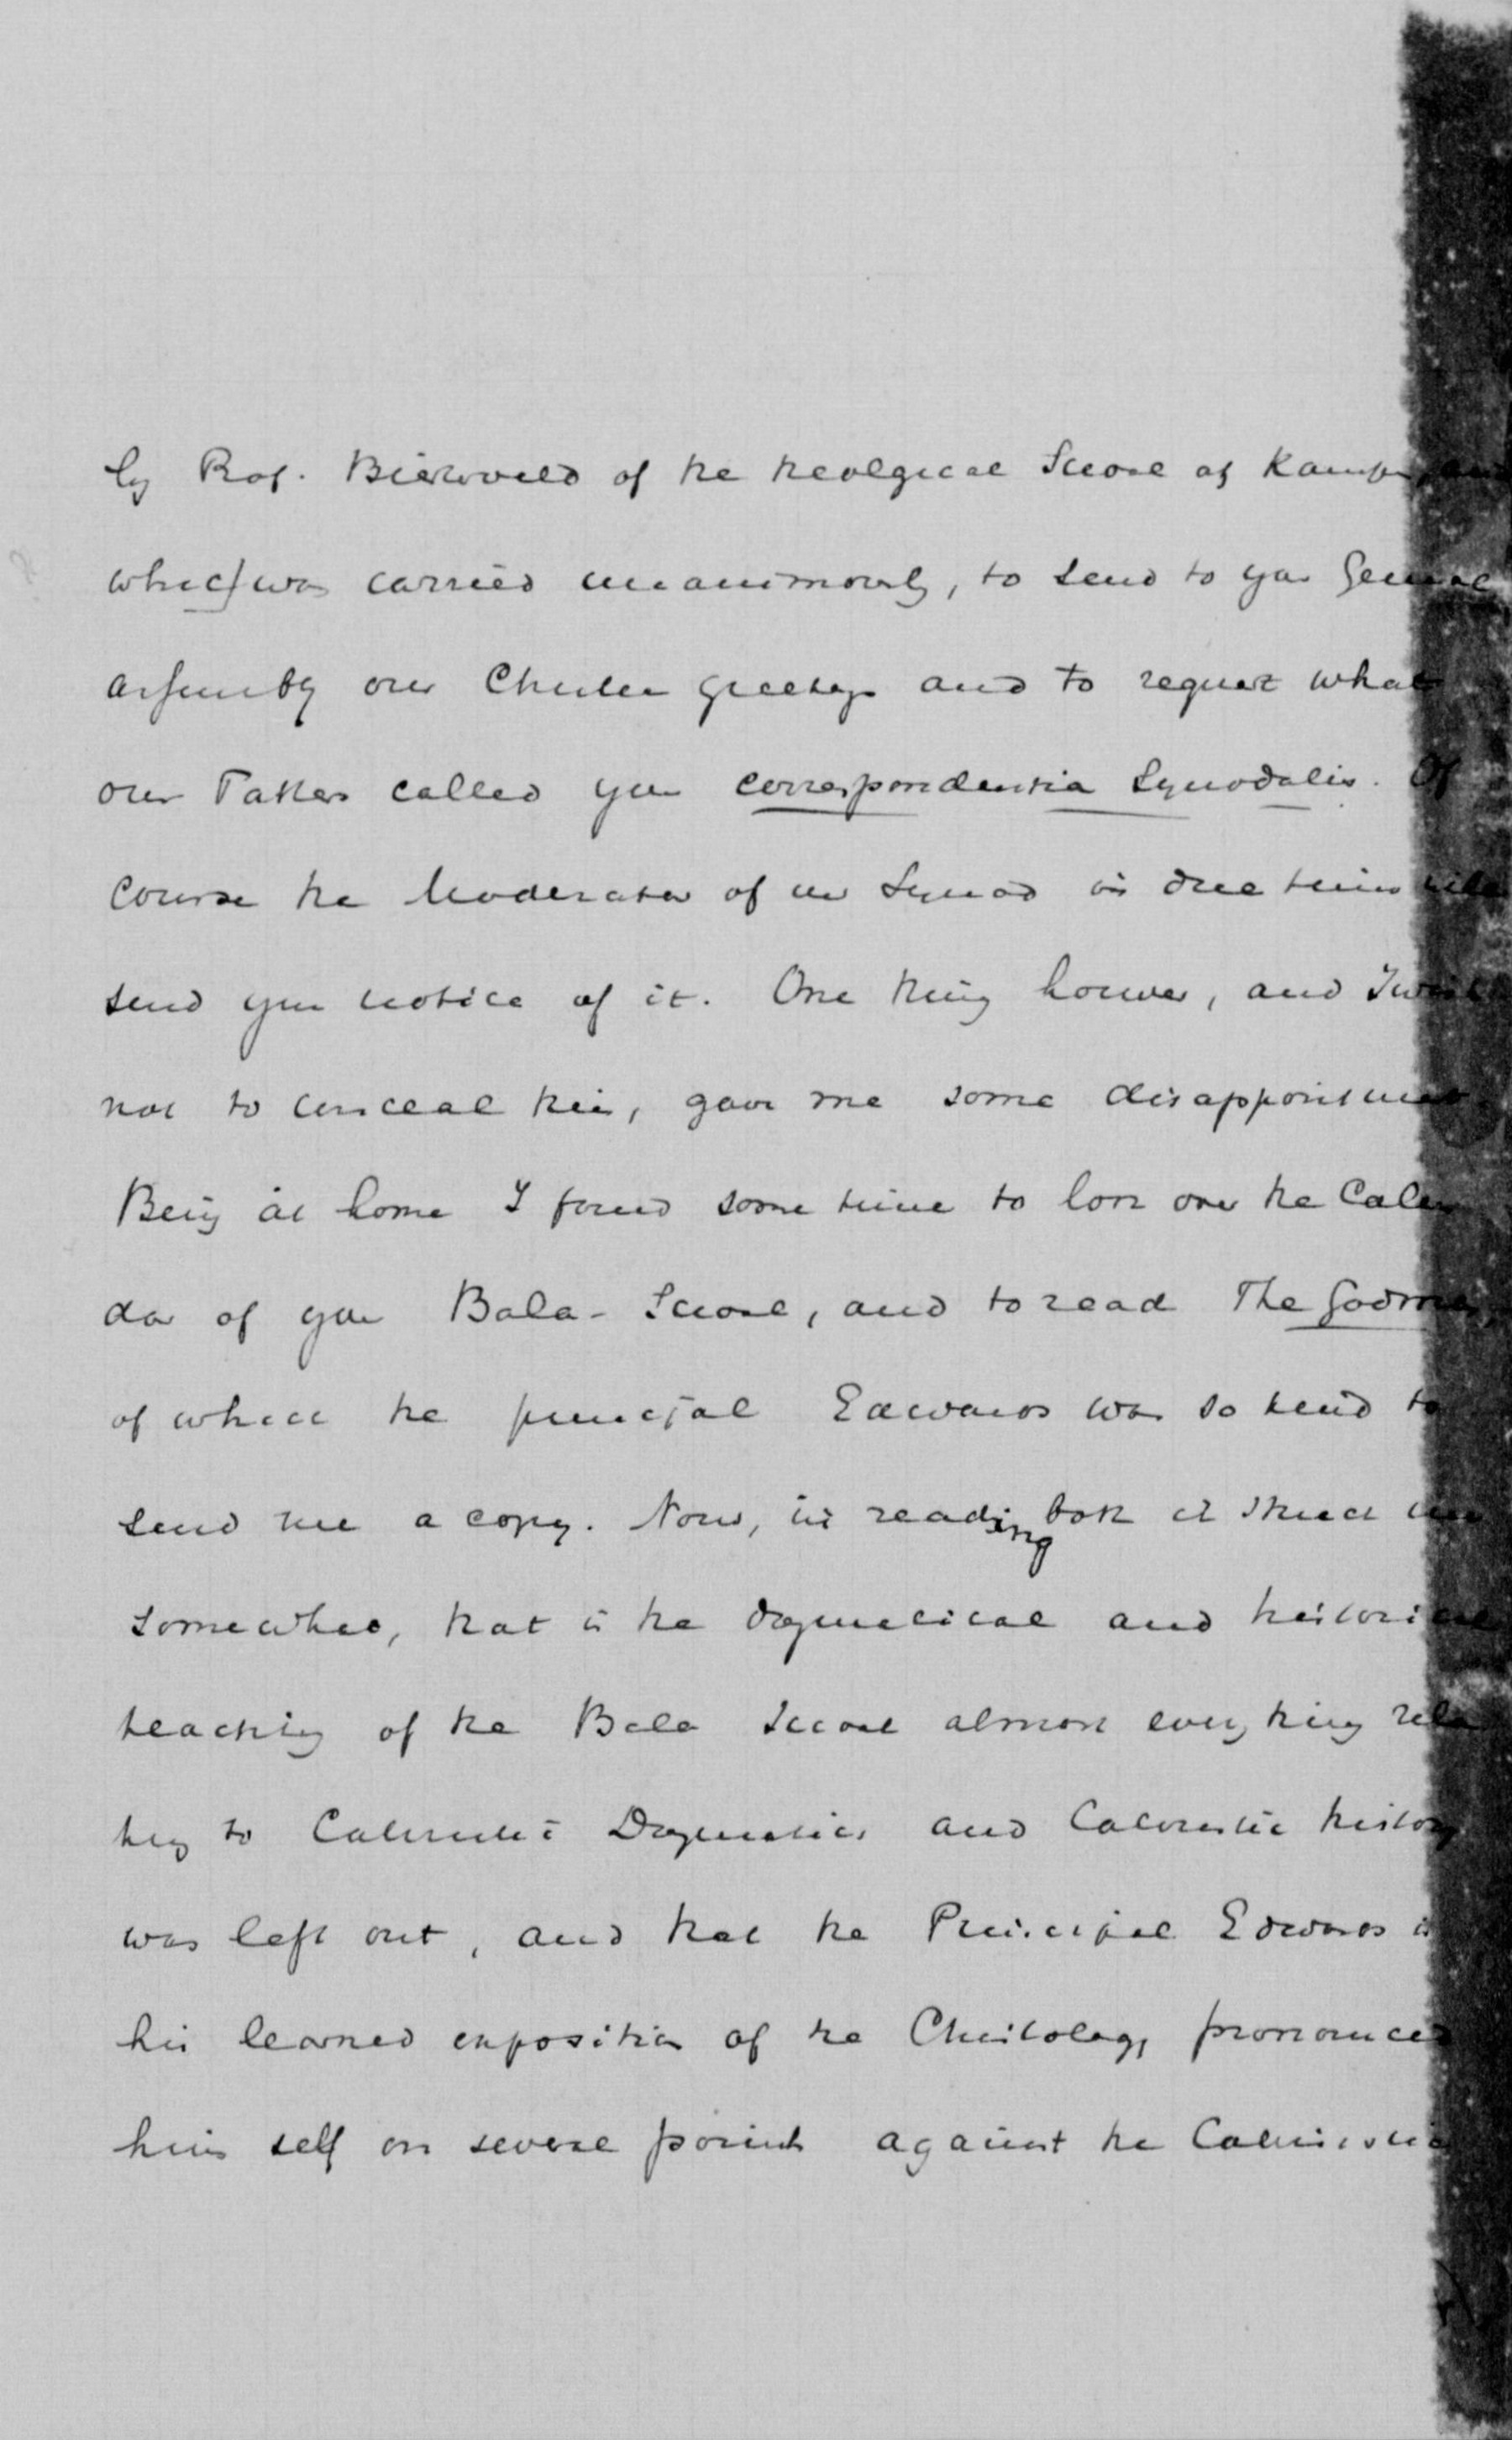 by Prof. Biesterveld of the theological School at Kampen, and
which was carried unanimously, to send to your General
Assembly our Christian greetings and to request what
our Fathers called your correspondentia Synodalis. Of
course the Moderator of our Synod in due time will
send you notice of it. One thing however, and I wish
not to conceal this, gave me some disappointment.
Being at home I found some time to look over the Calen
dar of your Bala-School, and to read The Godman,
of which the principal Edwards was so kind to
send me a copy. Now, in reading both it struck me
somewhat, that in the dogmatical and historical
teaching of the Bala School almost everything rela
ting to Calvinistic Dogmatics and Calvinistic history
was left out, and that the Principal Edwards in
his learned exposition of the Christology pronounced
him self on several points against the Calvinistic